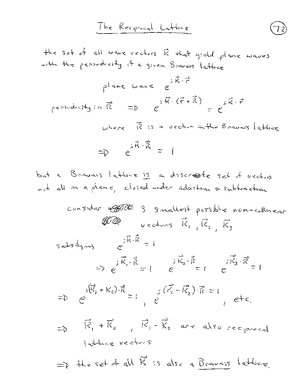 The Reciprocal Lattice
72
the set of all wave vectors K⃗ that yield plane waves
with the periodicity of a given Bravais lattice
plane wave e^{iK⃗·r⃗}
periodicity in R⃗ ⇒ e^{iK⃗·(r⃗+R⃗)} = e^{iK⃗·r⃗}
where R⃗ is a vector in the Bravais lattice
⇒ e^{iK⃗·R⃗} = 1
but a Bravais lattice is a discrete set of vectors
not all on a plane, closed under addition + subtraction
consider 3 smallest possible non-collinear
vectors K⃗₁, K⃗₂, K⃗₃
satisfying e^{iK⃗·R⃗} = 1
⇒ e^{iK⃗₁·R⃗} = 1 e^{iK⃗₂·R⃗} = 1 e^{iK⃗₃·R⃗} = 1
⇒ e^{i(K⃗₁+K₂)·R⃗} = 1, e^{i(K⃗₁-K⃗₂)·R⃗} = 1, etc.
⇒ K⃗₁ + K⃗₂, K⃗₁ - K⃗₂ are also reciprocal
lattice vectors
⇒ the set of all K⃗ is also a Bravais lattice.